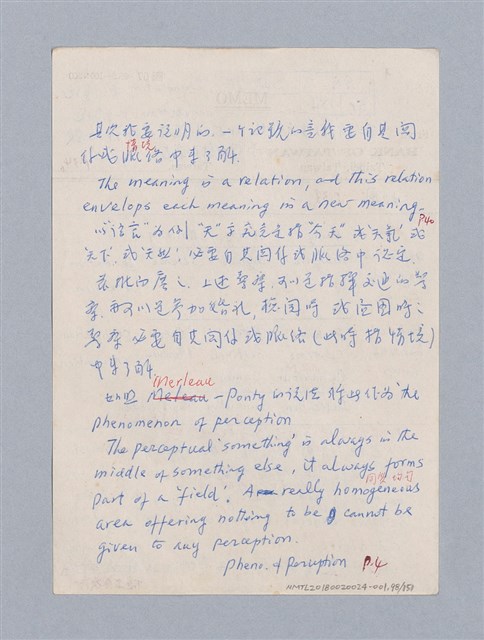 其次我要說明的, 一个記號的意義要自其関
係或脈络中來了解.
情境
The meaning is a relation, and this relation
envelops each meaning in a new meaning.
P.40
以"語言"為例 "天"字究竟是指"今天" 或"天氣" 或
"天下" 或"天然", 必要自其関係或脈络中認定.
上述警察, 可以是指揮交通的警
察, 亦可以是参加婚礼,
警察 必要自其関係或脈络 (此時指情境)
中來了解
Merleau
如照 Merleau - Ponty 的說法 the
phenomenon of perception
The perceptual 'something' is always in the
middle of something else, it always forms
part of a 'field'. A really homogeneous
同質的
area offering nothing to be cannot be
given to any perception.
Pheno. of perception P.4
HMTL20180020024-001,98/151